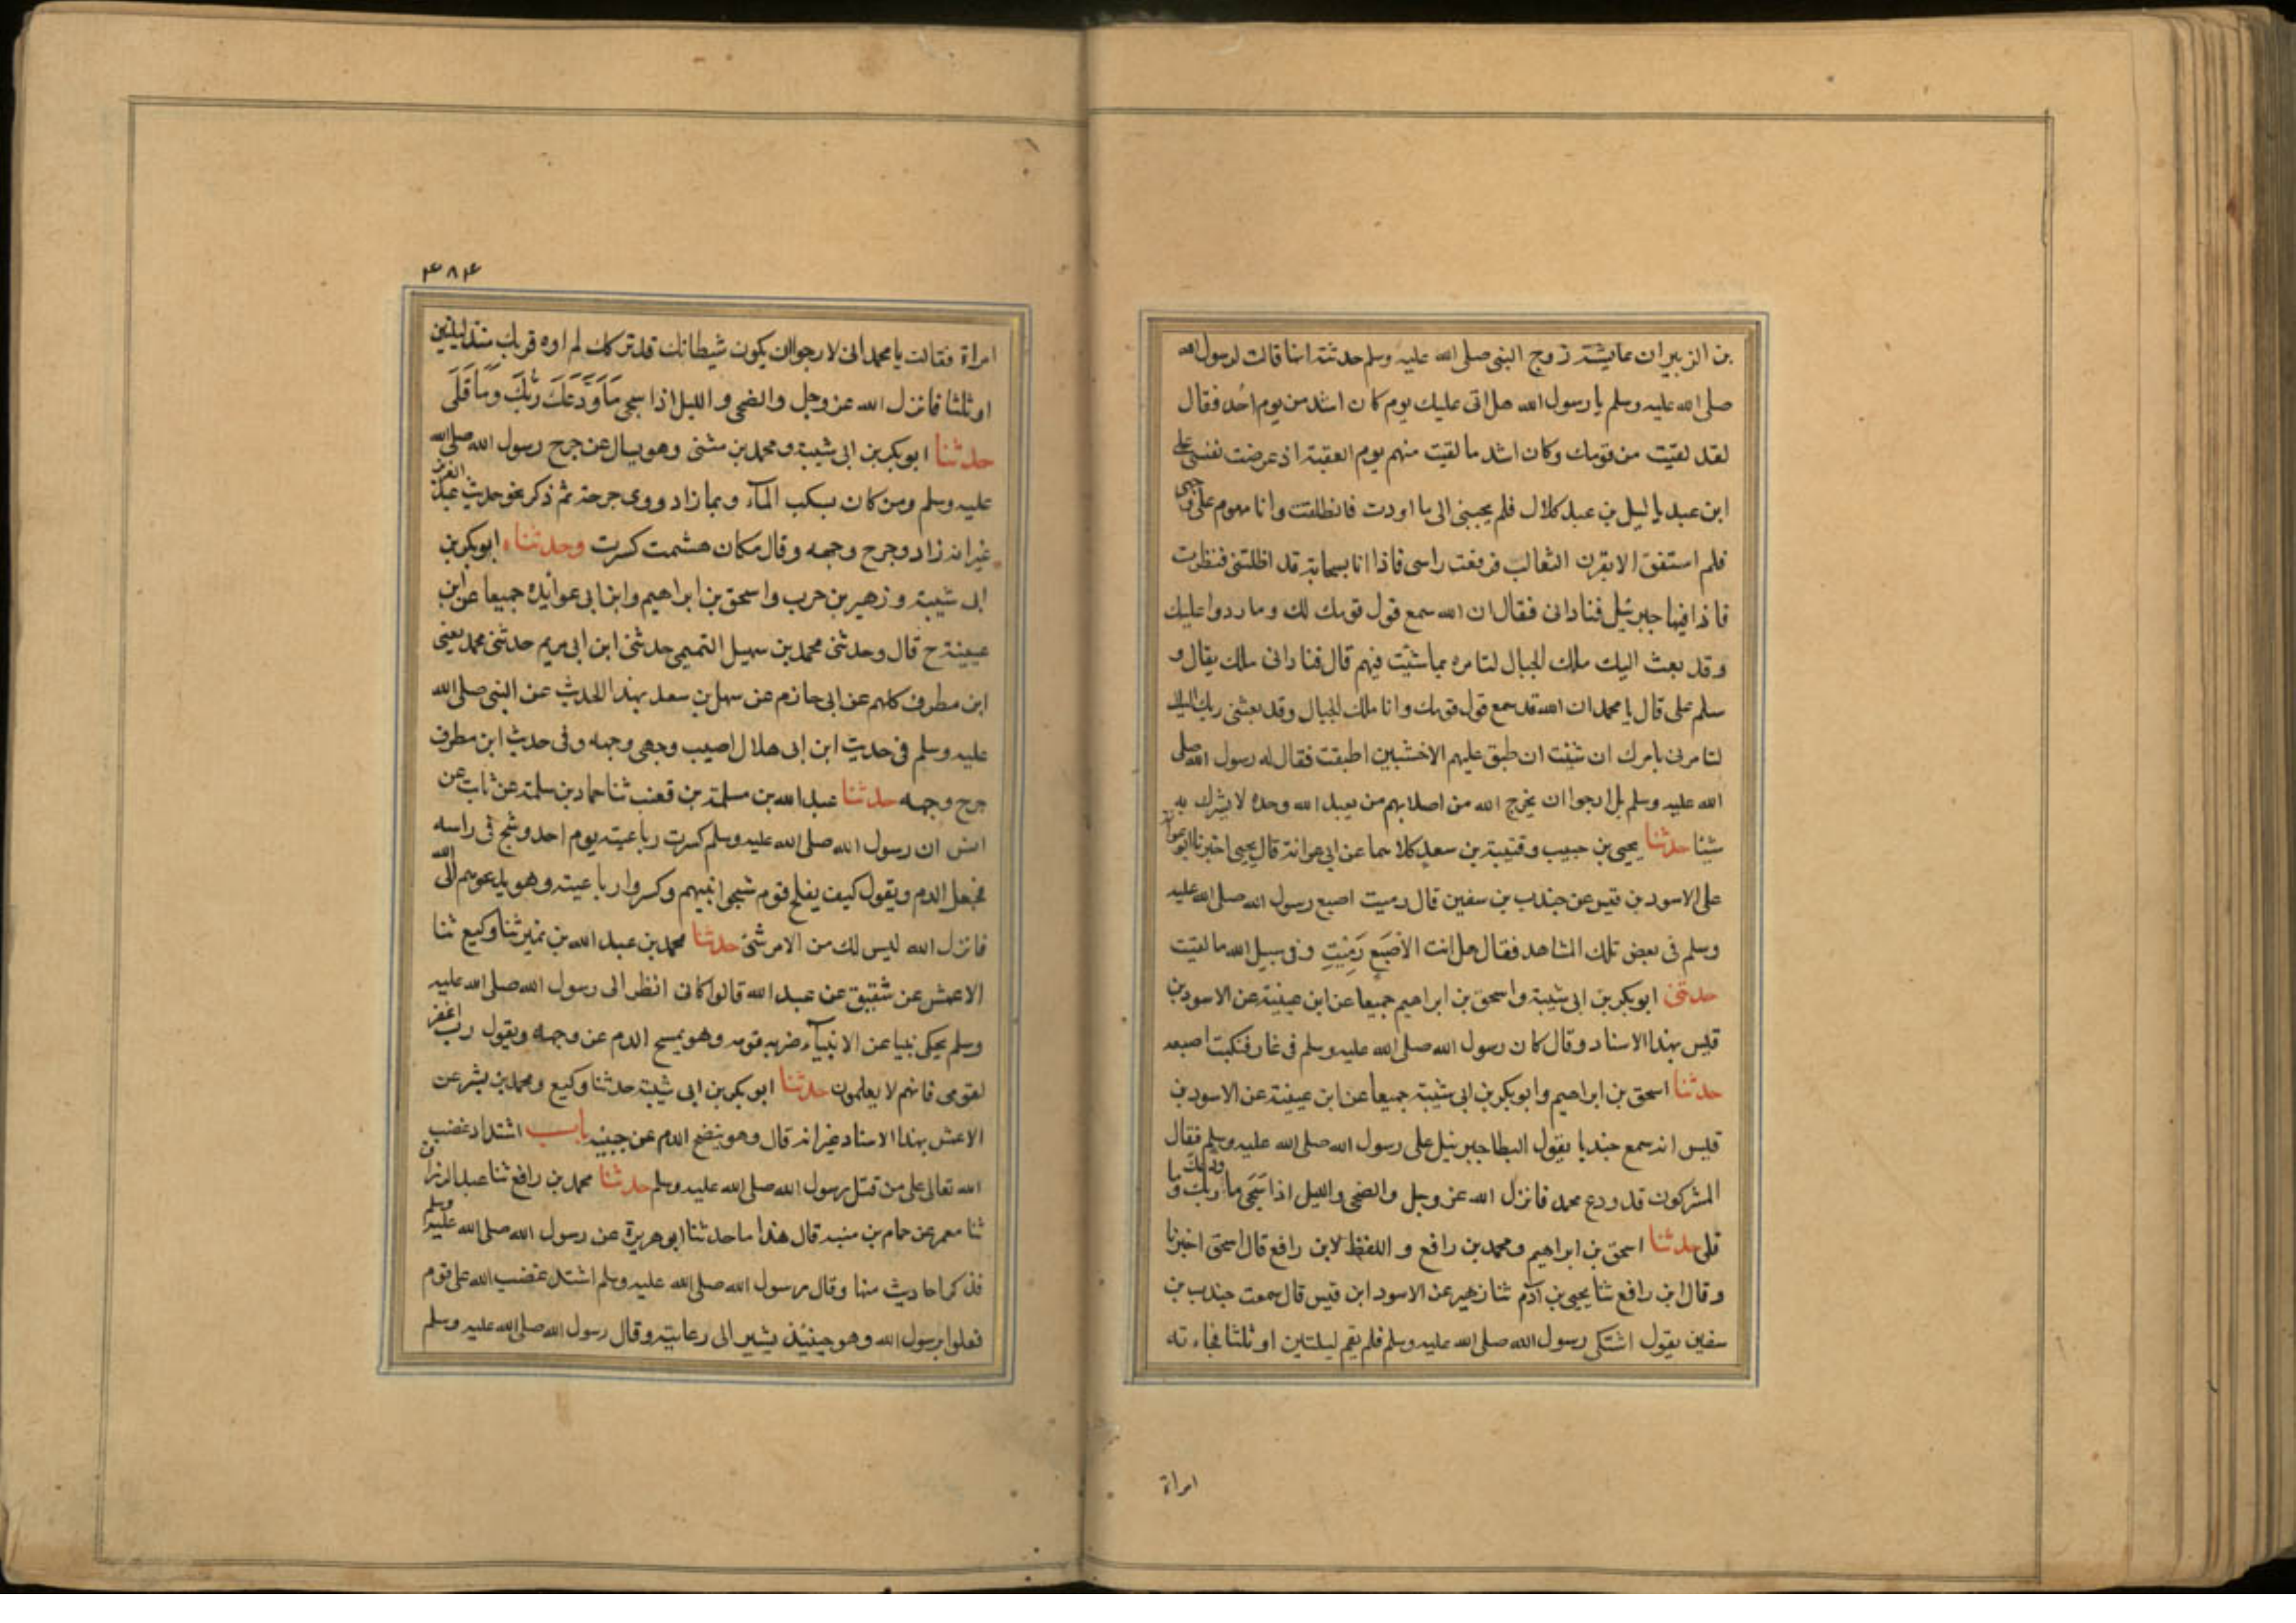 بن الزبير ان عايشة زوج النبى صلى الله عليه وسلم حدثته انها قالت لرسول الله
صلى الله عليه وسلم يا رسول الله هل اتى عليك يوم كان اشد من يوم احُد فقال
لقد لقيت من قومك وكان اشد ما لقيت منهم يوم العقبة اذ عرضت نفسى على
ابن عبد يا ليل بن عبد كلال فلم يجبنى الى ما اودت فانطلقت وانا مهموم على وجهى
فلم استفق الا بقرن الثعالب فرفعت راسى فاذا انا بسحابة قد اظلتنى فنظرت
فاذا فيها جبرئيل فنادانى فقال ان الله سمع قول قومك لك وما ردوا عليك
وقد بعث اليك ملك الجبال لتامره بما شئت فيهم قال فنادانى ملك يقال و
سلم على قال يا محمد ان الله قد سمع قول قومك وانا ملك الجبال وقد بعثنى ربك اليك
لتامرنى بامرك ان شئت ان طبق عليهم الاخشبين اطبقت فقال له رسول الله صلى
الله عليه وسلم بل ارجوا ان يخرج الله من اصلابهم من يعبد الله وحده لا يشرك به
شيئا حدثنا يحيى بن حبيب وقتيبة بن سعيد كلاهما عن ابى عوانة قال يحيى اخبرنا ابو عوانة
على الاسود بن قيس عن جندب بن سفين قال دميت اصبع رسول الله صلى الله عليه
وسلم فى بعض تلك المشاهد فقال هل انت الاصَبَع دَمِيْتِ وفى سبيل الله ما لقيت
حدثنى ابو بكر بن ابى شيبة واسحق بن ابراهيم جميعا عن ابن عيينة عن الاسود بن
قيس بهذا الاسناد وقال كان رسول الله صلى الله عليه وسلم فى غار فنكبت اصبعه
حدثنا اسحق بن ابراهيم وابو بكر بن ابى شيبة جميعا عن ابن عيينة عن الاسود بن
قيس انه سمع جندبا يقول ابطا جبرئيل على رسول الله صلى الله عليه وسلم فقال
المشركون قد ودع محمد فانزل الله عز وجل والضحى والليل اذا سَجَى ما ودعك ربك وما
قلى حدثنا اسحق بن ابراهيم ومحمد بن رافع و اللفظ لابن رافع قال اسحق اخبرنا
وقال ابن رافع ثنا يحيى بن آدم ثنا زهير عن الاسود ابن قيس قال سمعت جندب بن
سفين يقول اشتكى رسول الله صلى الله عليه وسلم فلم يقم ليلتين او ثلثا فجاءته
امراة
۴۸۴
امراة فقالت يا محمد انى لارجوا ان يكون شيطانك قد تركك لم اره قربك منذ ليلتين
او ثلثا فانزل الله عز وجل والضحى والليل اذا سجى مَاوَدَّعَكَ رَبُّكَ وَمَا قَلَى
حدثنا ابو بكر بن ابى شيبة ومحمد بن مثنى وهو يسال عن جرح رسول الله صلى الله
عليه وسلم ومن كان يسكب المآء وبما ذا دووى جرحه ثم ذكر نحو حديث عبد العزيز
غير انه زاد وجرح وجهه وقال مكان هشمت كسرت وحدثناه ابو بكر بن
ابى شيبة وزهير بن حرب واسحق بن ابراهيم وابن ابى جميعا عن ابن
عيينة ح قال وحدثنى محمد بن سهيل التميمى حدثنى ابن ابى مريم حدثنى محمد يعنى
ابن مطرف كلهم عن ابى حازم عن سهل بن سعد بهذا الحديث عن النبى صلى الله
عليه وسلم فى حديث ابن ابى هلال اصيب وجهه وفى حديث ابن مطرف
جرح وجهه حدثنا عبد الله بن مسلمة بن قعنب ثنا حماد بن سلمة عن ثابت عن
انس ان رسول الله صلى الله عليه وسلم كسرت رباعيته يوم احد وشج فى راسه
فجعل الدم ويقول كيف يفلح قوم شجوا نبيهم وكسروا رباعيته وهو يدعوهم الى الله
فانزل الله ليس لك من الامر شئ حدثنا محمد بن عبد الله بن نمير ثنا وكيع ثنا
الاعمش عن شقيق عن عبد الله قال كانى انظر الى رسول الله صلى الله عليه
وسلم يحكى نبيا عن الانبيآء ضربه قومه وهو يمسح الدم عن وجهه ويقول رب اغفر
لقومى فانهم لا يعلمون حدثنا ابو بكر بن ابى شيبة حدثنا وكيع ومحمد بن بشر عن
الاعمش بهذا الاسناد غير انه قال وهو ينضح الدم عن جبينه باب اشتداد غضب
الله تعالى على من قتل رسول الله صلى الله عليه وسلم حدثنا محمد بن رافع ثنا عبد الرزاق
ثنا معمر عن همام بن منبه قال هذا ما حدثنا ابو هريرة عن رسول الله صلى الله عليه وسلم
فذكر احاديث منها وقال رسول الله صلى الله عليه وسلم اشتد غضب الله على قوم
فعلوا برسول الله وهو حينئذ يشير الى رباعيته وقال رسول الله صلى الله عليه وسلم